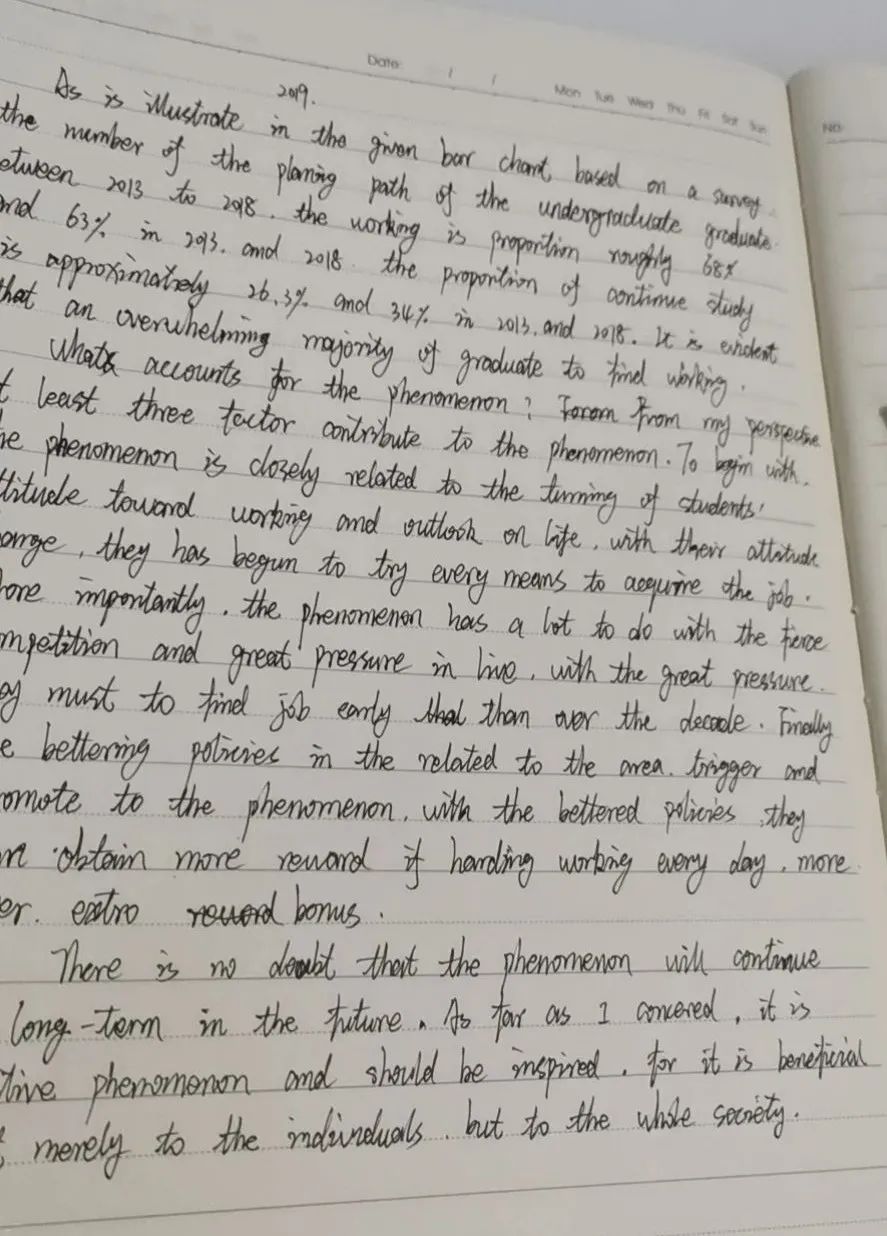 Date: / /
Mon Tue Wed Thu Fri Sat Sun
NO.
2019.
As is illustrate in the given bar chart, based on a survey
the member of the planing path of the undergraduate graduate.
etween 2013 to 2018. the working is proportion roughly 68%
nd 63% in 2013. and 2018. the proportion of continue study
is approximately 26.3% and 34% in 2013. and 2018. It is evident
that an overwhelming majority of graduate to find working.
What accounts for the phenomenon? From my perspective
t least three factor contribute to the phenomenon. To begin with.
he phenomenon is closely related to the turning of students'
ttitude toward working and outlook on life, with their attitude
ange, they has begun to try every means to acquire the job.
ore importantly. the phenomenon has a lot to do with the fierce
mpetition and great pressure in live, with the great pressure.
ey must to find job early than over the decade. Finally
e bettering policies in the related to the area. trigger and
omote to the phenomenon, with the bettered policies, they
n obtain more reward if harding working every day. more
er. extro bonus.
There is no doubt that the phenomenon will continue
long-term in the future. As far as I concered, it is
itive phenomenon and should be inspired. for it is beneficial
merely to the individuals. but to the whole society.